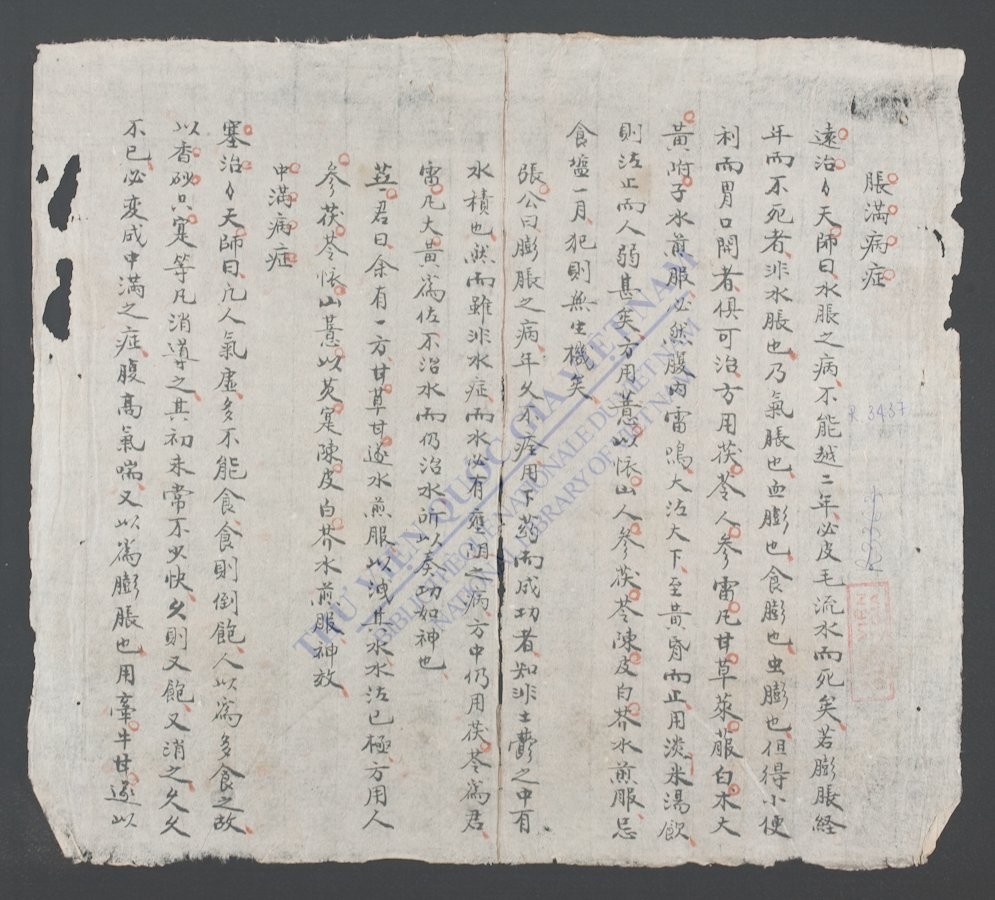 脹滿病症
遠治〻天師曰水脹之病不能越二年必皮毛流水而死矣若膨脹経
年而不死者非水脹也乃氣脹也血膨也食膨也虫膨也但得小便
利而胃口開者俱可治方用茯苓人參雷凡甘草萊服白朮大
黃附子水煎服必然腹內雷鳴大泣大下至黃昏而止用淡米湯飲
則泣止而人弱甚矣方用薏以懐山人參茯苓陳皮白芥水煎服忌
食塩一月犯則無生機矣
張公曰膨脹之病年久不痊用下药而成功者知非土鬱之中有
水積也然而雖非水症而水必有壅阻之病方中仍用茯苓為君
雷凡大黃為佐不治水而仍治水所以奏功如神也
君曰余有一方甘草甘遂水煎服以洩其水水泣已極方用人
參茯苓懐山薏以芡寔陳皮白芥水煎服神放
中滿病症
塞治〻天師曰凢人氣虛多不能食食則倒飽人以為多食之故
以香砂只寔等凡消導之其初未常不少快久則又飽又消之久久
不已必変成中滿之症腹高氣喘又以為膨脹也用牽牛甘遂以
R 3437
THƯ VIỆN QUỐC GIA VIỆT NAM
BIBLIOTHÈQUE NATIONALE DU VIETNAM
NATIONAL LIBRARY OF VIETNAM